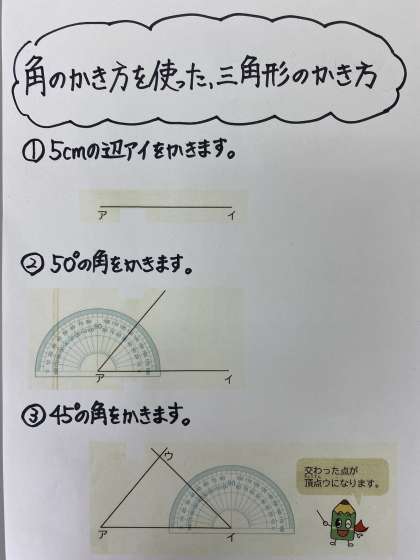 角のかき方を使った、三角形のかき方
① 5cmの辺アイをかきます。
ア イ
② 50°の角をかきます。
ア イ
③ 45°の角をかきます。
ウ
交わった点が
頂点ウになります。
ア イ